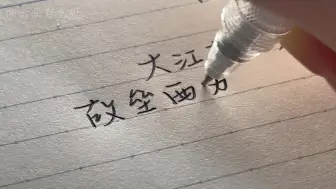 大江
故垒西